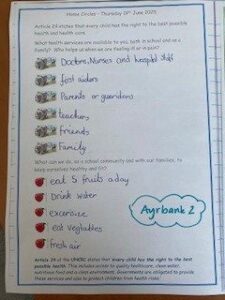 Home Circles - Thursday 12th June 2025
Article 24 states that every child has the right to the best possible
health and health care.
What health services are available to you, both in school and as a
family? Who helps us when we are feeling ill or in pain?
Doctors, Nurses and hospital staff
first aiders
Parents or guardians
teachers
friends
Family
What can we do, as a school community and with our families, to
keep ourselves healthy and fit?
eat 5 fruits a day
Drink water
excersise
eat vegtables
fresh air
Ayrbank 2
Article 24 of the UNCRC states that every child has the right to the best
possible health. This includes access to quality healthcare, clean water,
nutritious food and a clean environment. Governments are obligated to provide
these services and also to protect children from health risks.